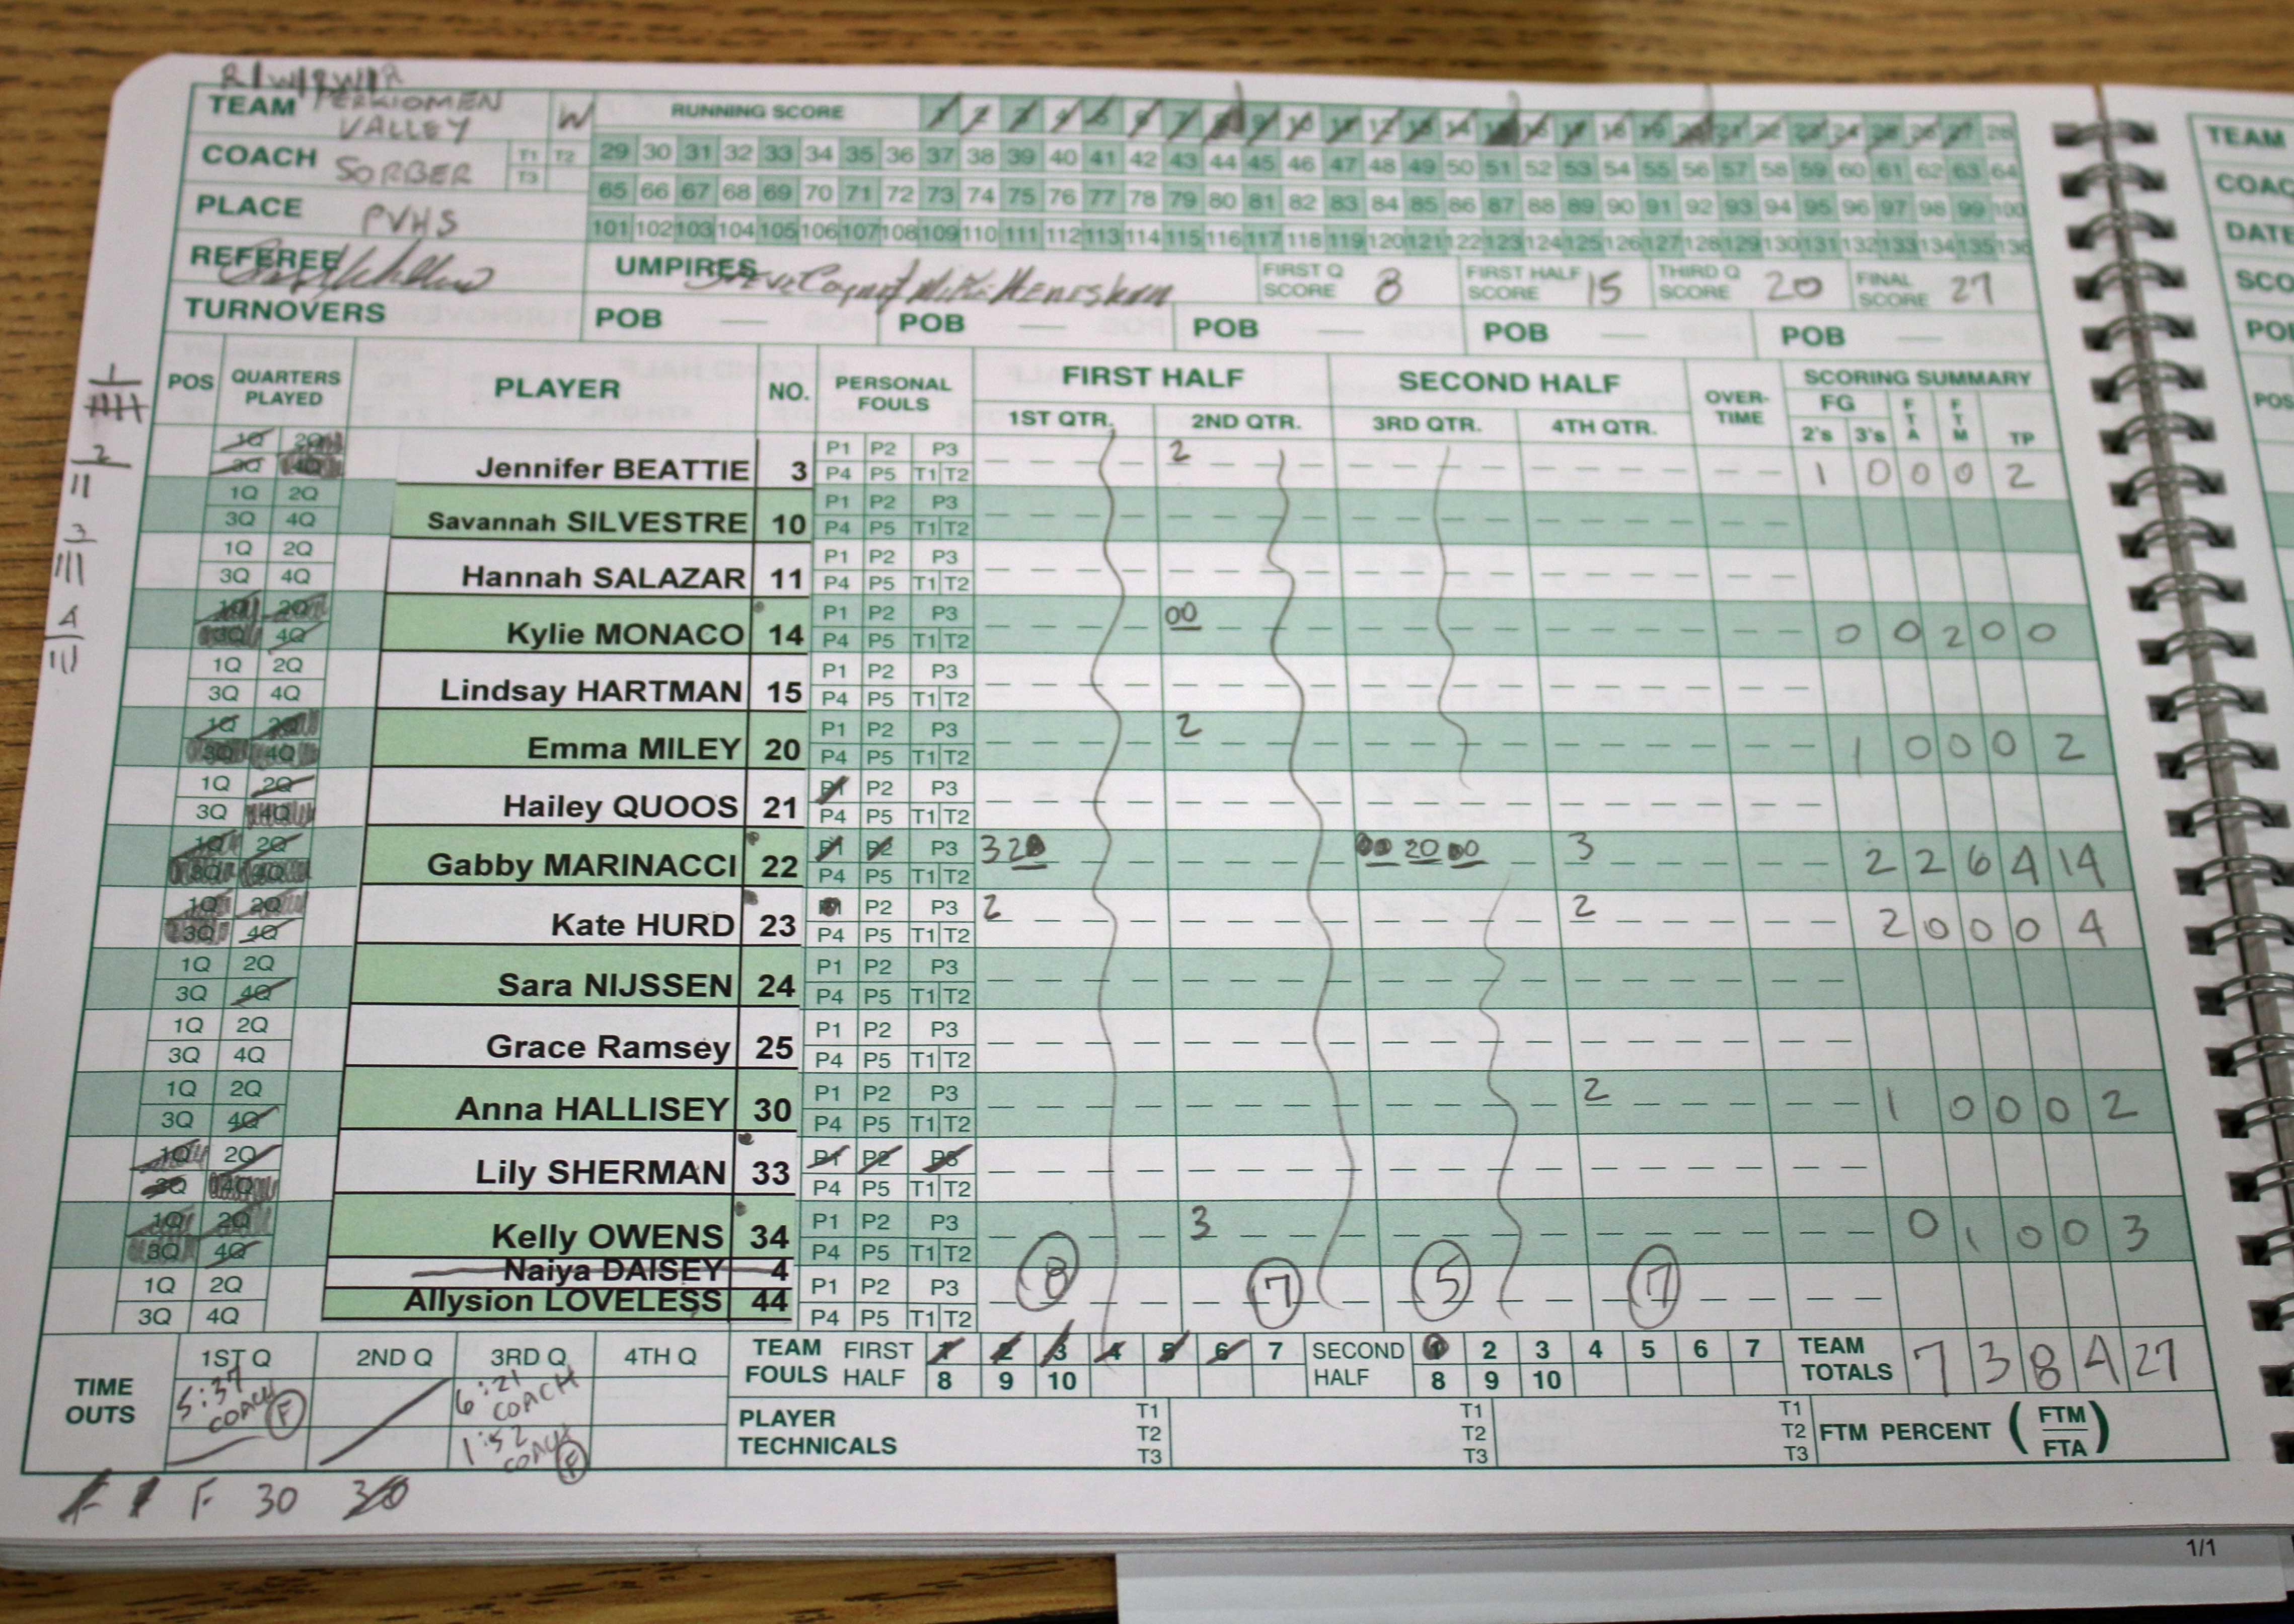 R/W/R/W/R
TEAM PERKIOMEN VALLEY W RUNNING SCORE 1 2 3 4 5 6 7 8 9 10 11 12 13 14 15 16 17 18 19 20 21 22 23 24 25 26 27 28
COACH SORBER T1 T2 T3 29 30 31 32 33 34 35 36 37 38 39 40 41 42 43 44 45 46 47 48 49 50 51 52 53 54 55 56 57 58 59 60 61 62 63 64
65 66 67 68 69 70 71 72 73 74 75 76 77 78 79 80 81 82 83 84 85 86 87 88 89 90 91 92 93 94 95 96 97 98 99 100
PLACE PVHS 101 102 103 104 105 106 107 108 109 110 111 112 113 114 115 116 117 118 119 120 121 122 123 124 125 126 127 128 129 130 131 132 133 134 135 136
REFEREE UMPIRES FIRST Q SCORE 8 FIRST HALF SCORE 15 THIRD Q SCORE 20 FINAL SCORE 27
TURNOVERS POB — POB — POB — POB — POB —
POS QUARTERS PLAYED PLAYER NO. PERSONAL FOULS FIRST HALF SECOND HALF OVER-TIME SCORING SUMMARY
1ST QTR. 2ND QTR. 3RD QTR. 4TH QTR. FG 2's 3's FTA FTM TP
1Q 2Q 3Q 4Q Jennifer BEATTIE 3 P1 P2 P3 P4 P5 T1 T2 2 1 0 0 0 2
1Q 2Q 3Q 4Q Savannah SILVESTRE 10 P1 P2 P3 P4 P5 T1 T2
1Q 2Q 3Q 4Q Hannah SALAZAR 11 P1 P2 P3 P4 P5 T1 T2
1Q 2Q 3Q 4Q Kylie MONACO 14 P1 P2 P3 P4 P5 T1 T2 00 0 0 2 0 0
1Q 2Q 3Q 4Q Lindsay HARTMAN 15 P1 P2 P3 P4 P5 T1 T2
1Q 2Q 3Q 4Q Emma MILEY 20 P1 P2 P3 P4 P5 T1 T2 2 1 0 0 0 2
1Q 2Q 3Q 4Q Hailey QUOOS 21 P1 P2 P3 P4 P5 T1 T2
1Q 2Q 3Q 4Q Gabby MARINACCI 22 P1 P2 P3 P4 P5 T1 T2 3 20 00 20 00 3 2 2 6 4 14
1Q 2Q 3Q 4Q Kate HURD 23 P1 P2 P3 P4 P5 T1 T2 2 2 2 0 0 0 4
1Q 2Q 3Q 4Q Sara NIJSSEN 24 P1 P2 P3 P4 P5 T1 T2
1Q 2Q 3Q 4Q Grace Ramsey 25 P1 P2 P3 P4 P5 T1 T2
1Q 2Q 3Q 4Q Anna HALLISEY 30 P1 P2 P3 P4 P5 T1 T2 2 1 0 0 0 2
1Q 2Q 3Q 4Q Lily SHERMAN 33 P1 P2 P3 P4 P5 T1 T2
1Q 2Q 3Q 4Q Kelly OWENS 34 P1 P2 P3 P4 P5 T1 T2 3 0 1 0 0 3
Naiya DAISEY 4
1Q 2Q 3Q 4Q Allysion LOVELESS 44 P1 P2 P3 P4 P5 T1 T2 8 7 5 7
TIME OUTS 1ST Q 2ND Q 3RD Q 4TH Q
5:37 COACH F
6:21 COACH
1:52 COACH F
TEAM FOULS FIRST HALF 1 2 3 4 5 6 7 8 9 10 SECOND HALF 1 2 3 4 5 6 7 8 9 10 TEAM TOTALS 7 3 8 4 27
PLAYER TECHNICALS T1 T2 T3 T1 T2 T3 T1 T2 T3 FTM PERCENT (FTM FTA)
F 30 30
1
2
3
4
TEAM
POS
1/1